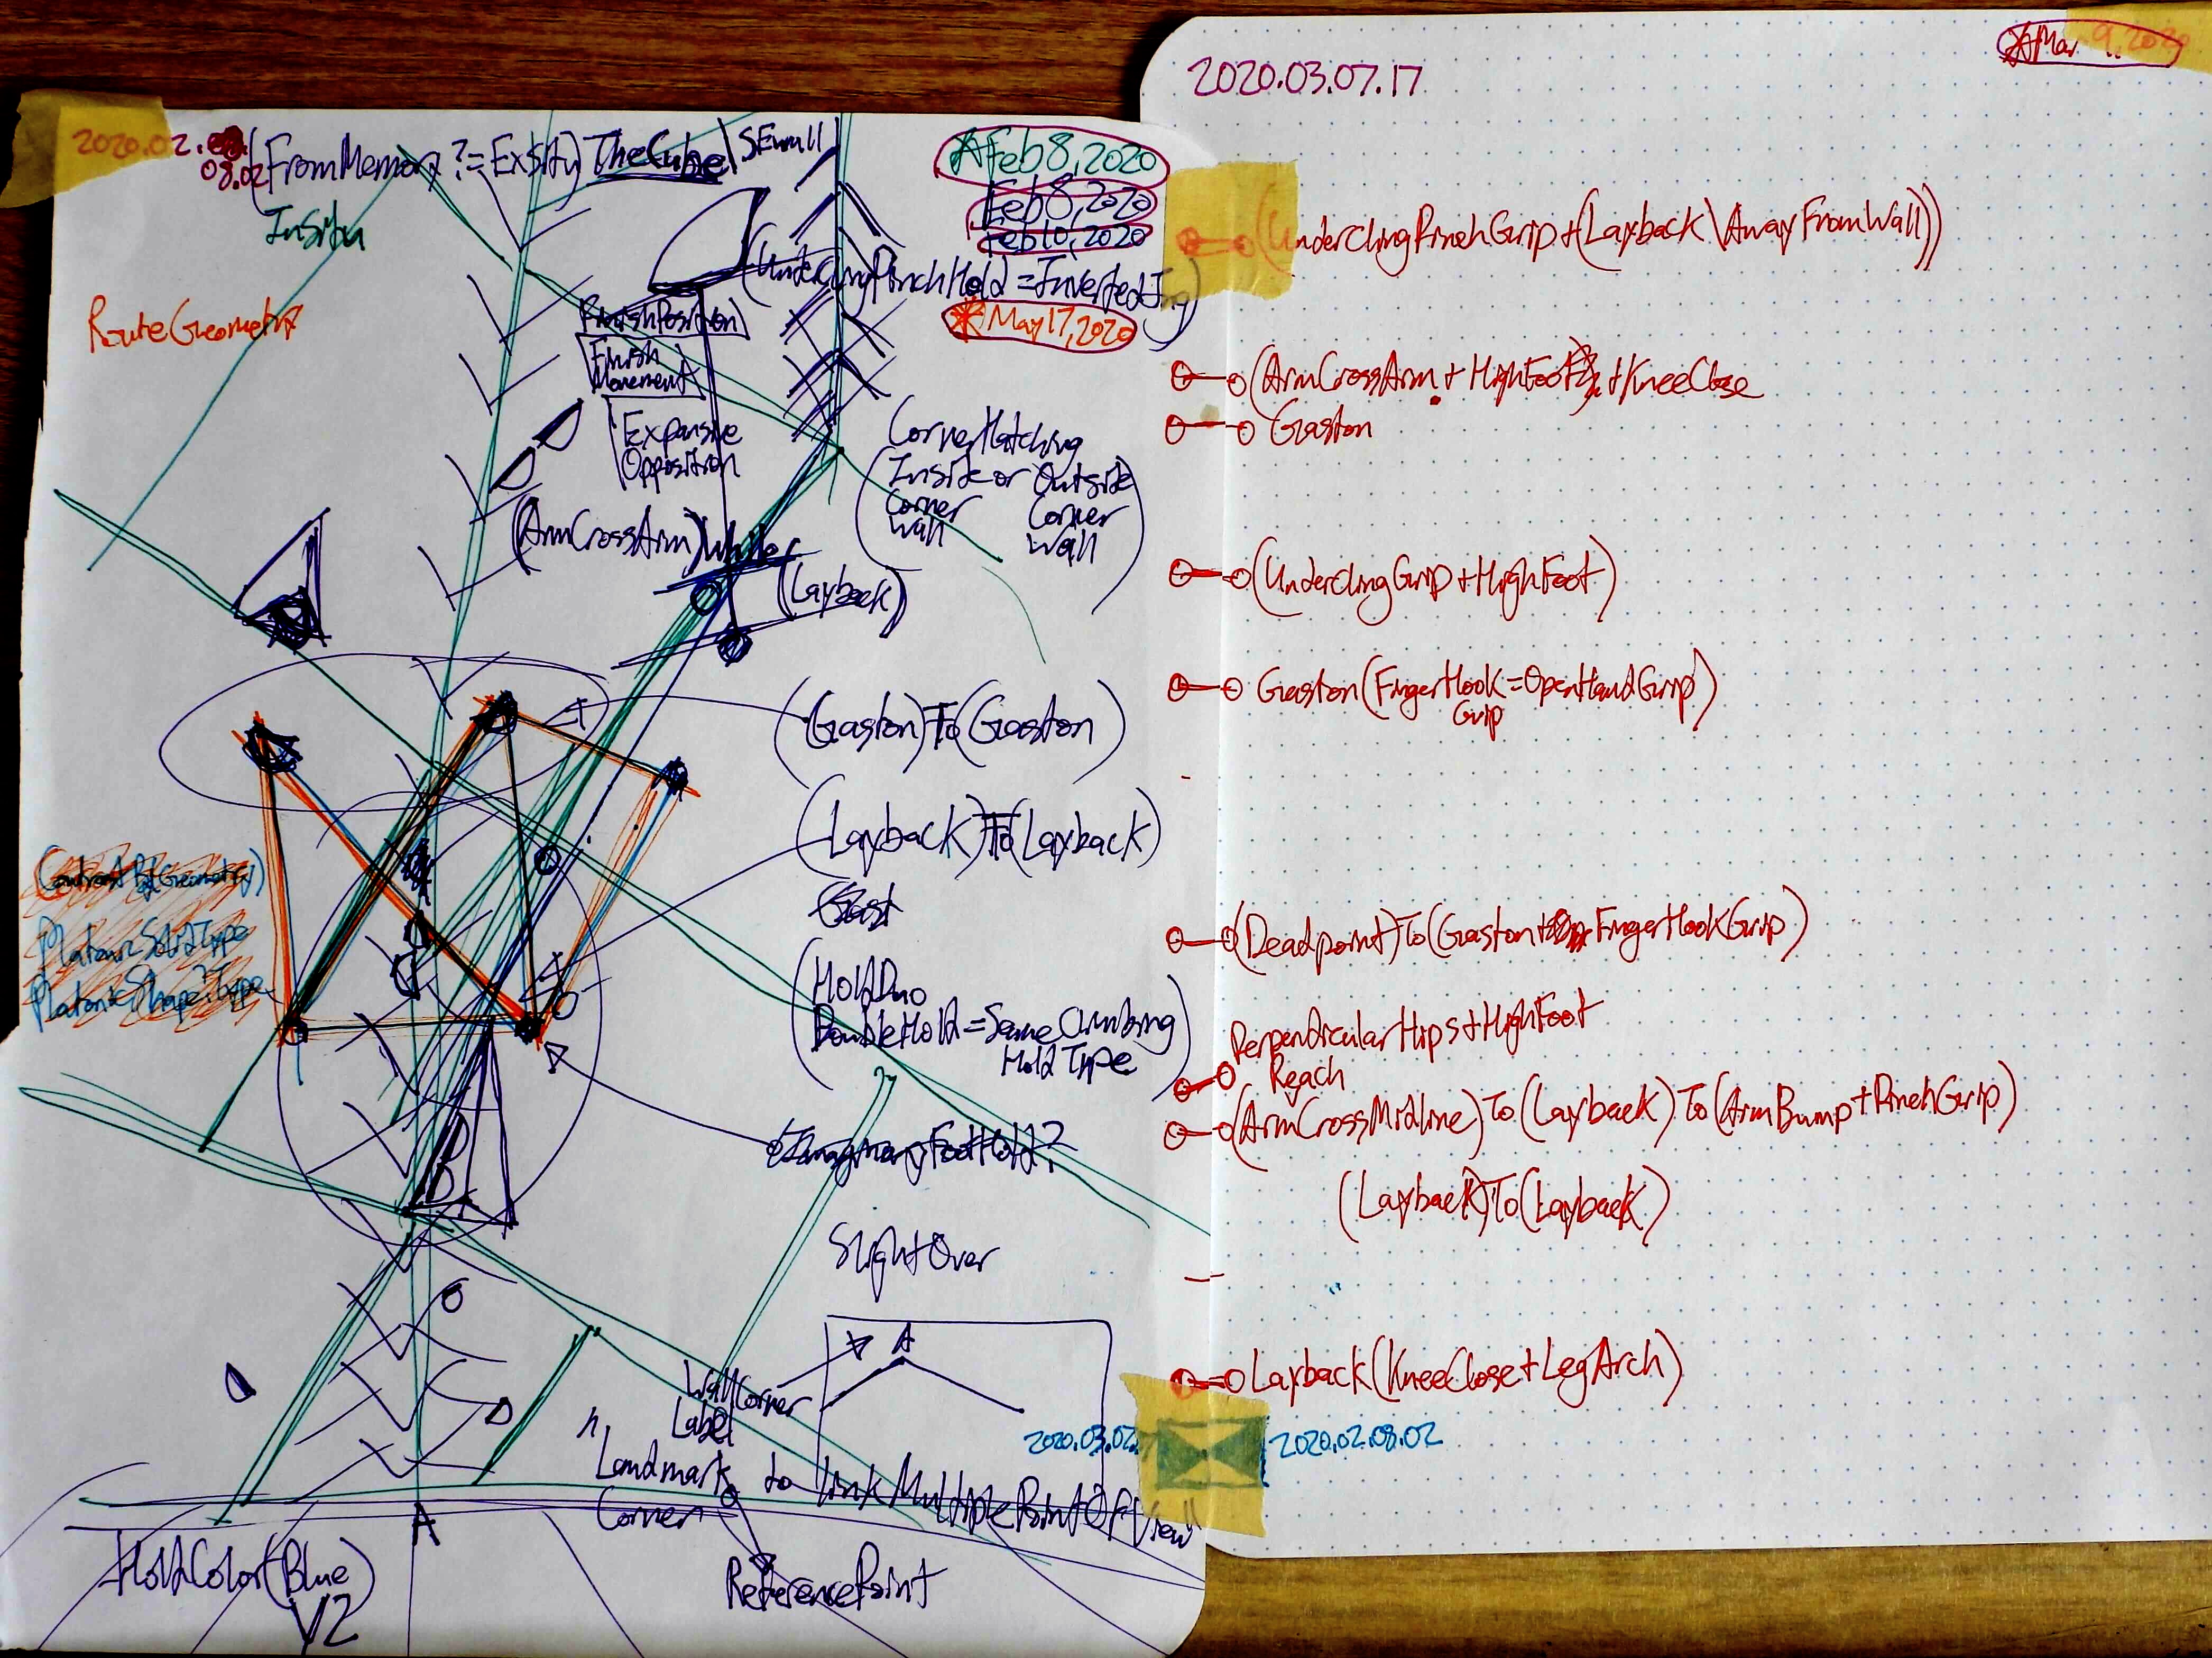 2020.02.
08.02
(FromMemory ?= ExSitu) TheCube\SEwall
InSitu
Feb 8, 2020
Feb 8, 2020
Feb 10, 2020
(UnderclingPinchHold = InvertedJug)
May 17, 2020
RouteGeometry
FinishPosition
Finish
Movement
Expansive
Opposition
CornerMatching
Inside or Outside
Corner Corner
Wall Wall
(ArmCrossArm) While
(Layback)
(Gaston)To(Gaston)
(Layback)To(Layback)
Gast
(HoldDuo
DoubleHold = SameClimbing
HoldType)
PlatonicSolidType
PlatonicShape?Type
ImaginaryFootHold?
SlightOver
A
WallCorner
Label
Landmark to linkMultiplePointOfView
Corner
2020.03.02
A
HoldColor(Blue)
V2
ReferencePoint
2020.03.07.17
Mar 9, 2020
(UnderclingPinchGrip + (Layback\AwayFromWall))
(ArmCrossArm + HighFoot) + KneeClose
Gaston
(UnderclingGrip + HighFoot)
Gaston(FingerHook = OpenHandGrip)
Grip
(Deadpoint)To(Gaston + FingerHookGrip)
PerpendicularHips + HighFoot
Reach
(ArmCrossMidline)To(Layback)To(ArmBump + PinchGrip)
(Layback)To(Layback)
Layback(KneeClose + LegArch)
2020.02.08.02